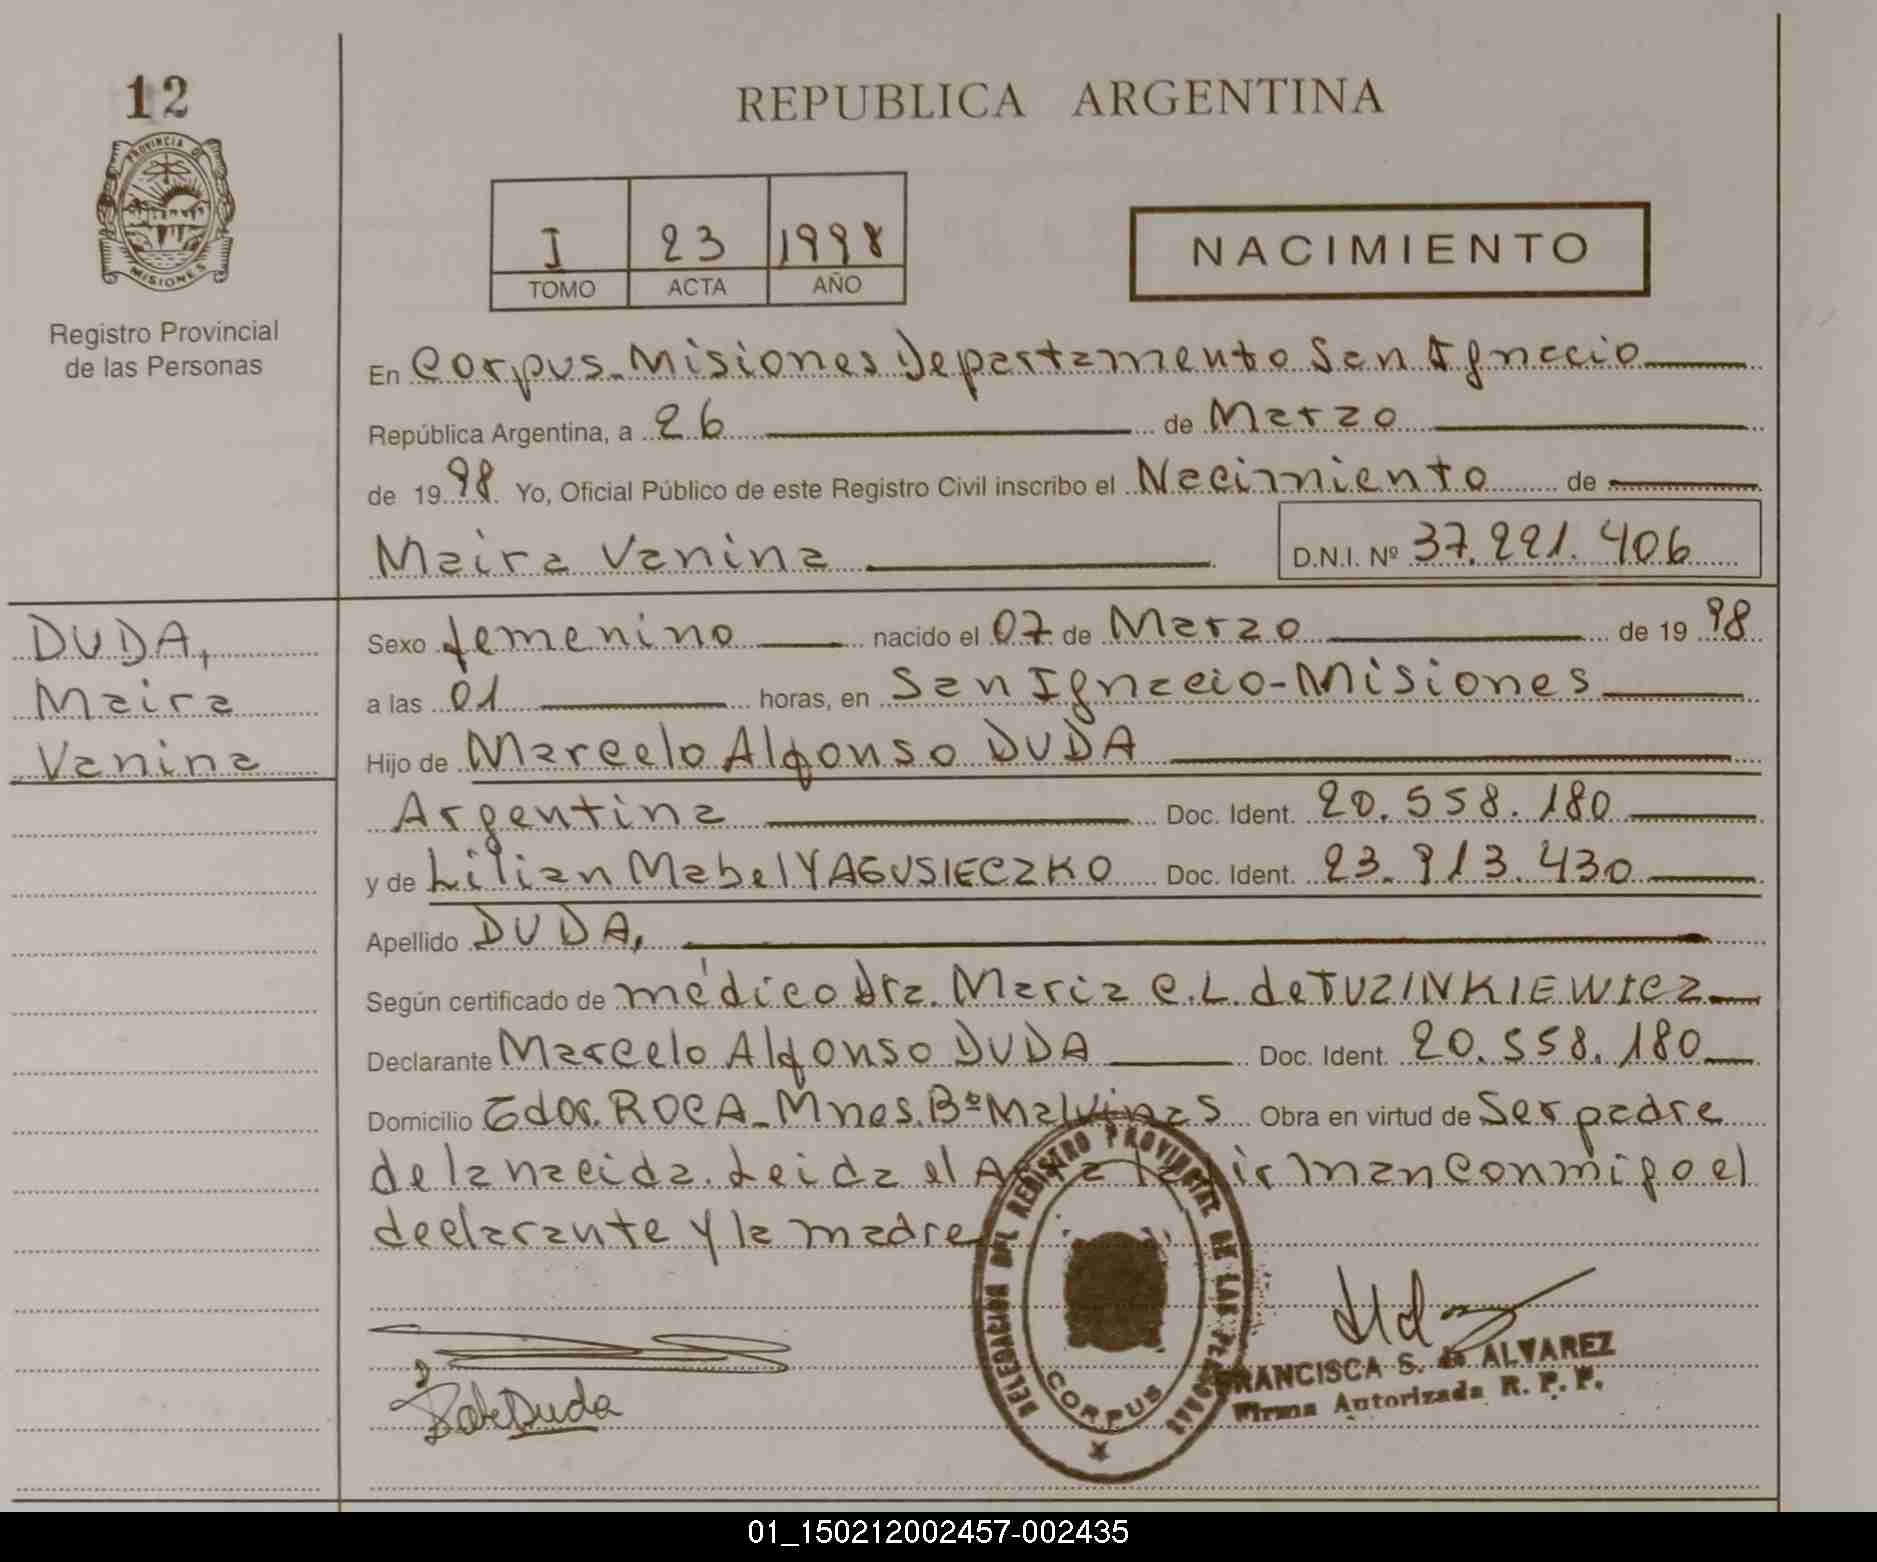 12
PROVINCIA DE
MISIONES
Registro Provincial
de las Personas
REPUBLICA ARGENTINA
I 23 1998
TOMO ACTA AÑO
NACIMIENTO
En Corpus-Misiones Departamento San Ignacio
República Argentina, a 26 de Marzo
de 1998. Yo, Oficial Público de este Registro Civil inscribo el Nacimiento de
Maira Vanina D.N.I. Nº 37.221.406
DUDA,
Maira
Vanina
Sexo femenino nacido el 07 de Marzo de 1998
a las 01 horas, en San Ignacio-Misiones
Hijo de Marcelo Alfonso DUDA
Argentina Doc. Ident. 20.558.180
y de Lilian Mabel YAGUSIECZKO Doc. Ident. 23.913.430
Apellido DUDA,
Según certificado de médico Dra. Maria C.L. de TUZINKIEWICZ
Declarante Marcelo Alfonso DUDA Doc. Ident. 20.558.180
Domicilio Gdor. ROCA-Mnes. Bº Malvinas Obra en virtud de Ser padre
de la nacida. Leida el Acta la firman conmigo el
declarante y la madre
DELEGACION DEL REGISTRO PROVINCIAL DE LAS PERSONAS
CORPUS
Duda
FRANCISCA S. de ALVAREZ
Firma Autorizada R. P. P.
01_150212002457-002435